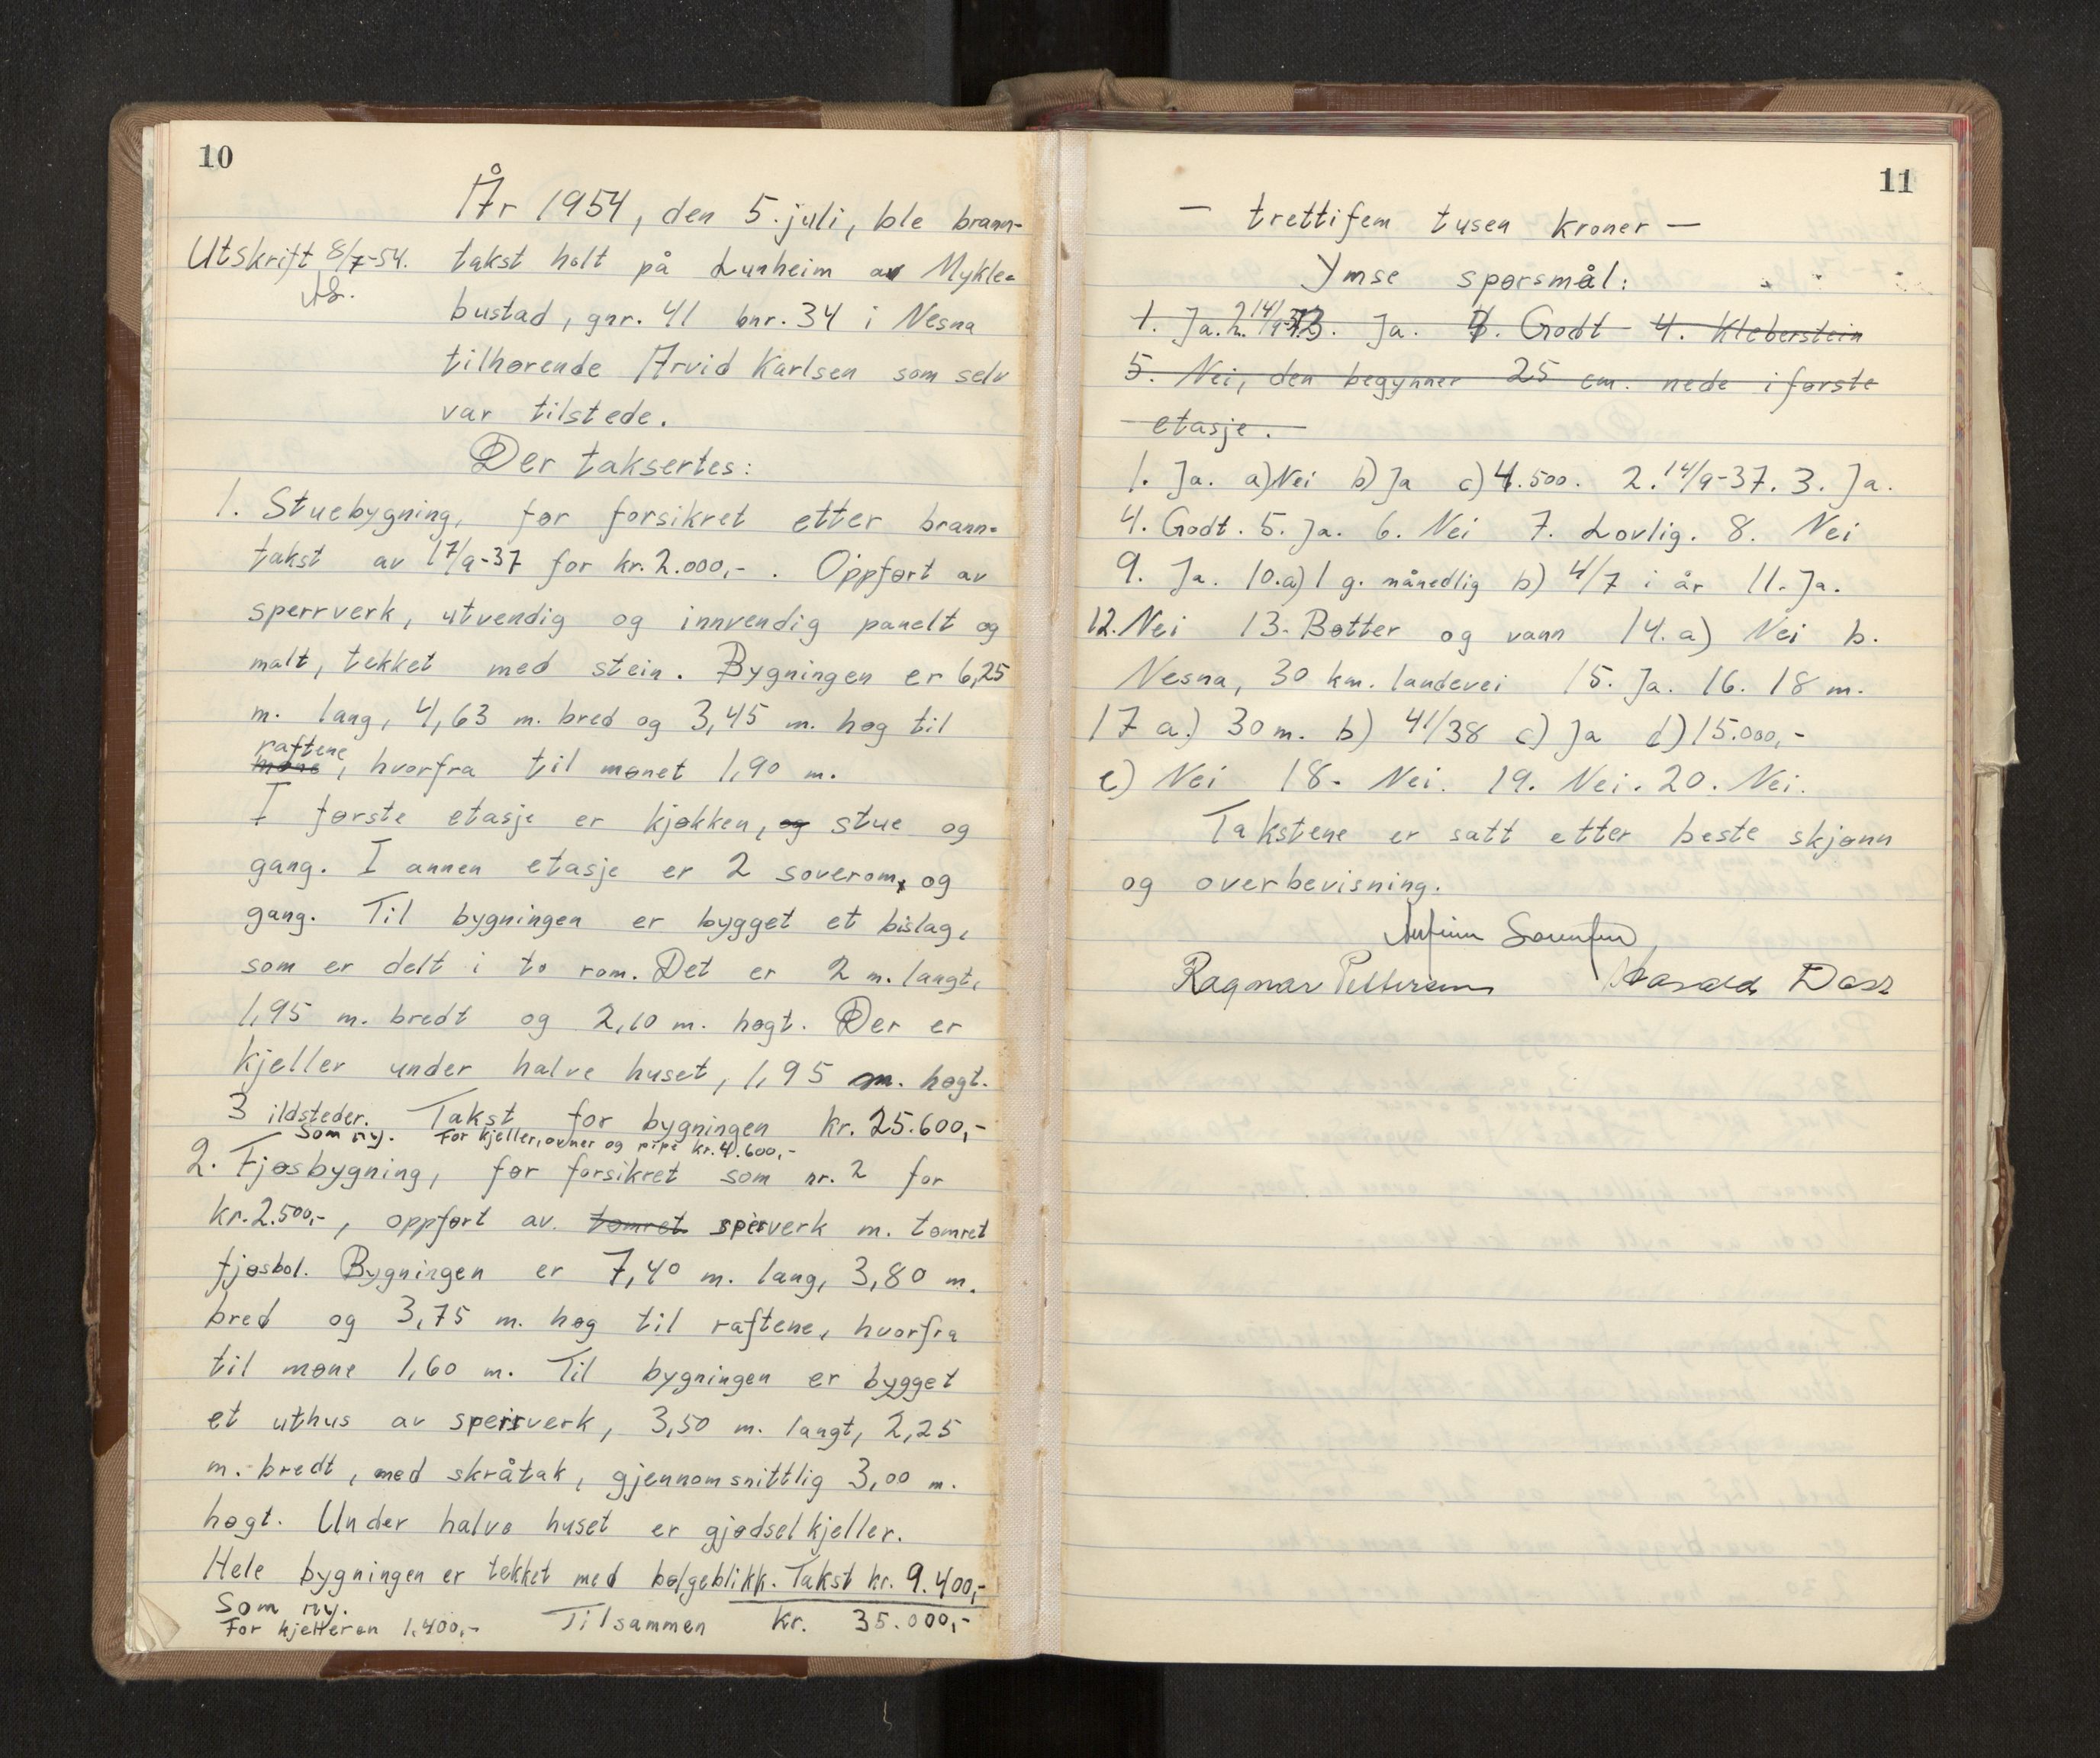 10
År 1954, den 5. juli, ble brann-
Utskrift 8/7-54.
takst holt på Lunheim av Mykle-
bustad, gnr. 41 bnr. 34 i Nesna
tilhørende Arvid Karlsen som selv
var tilstede.
Der taksertes:
1. Stuebygning, før forsikret etter brann-
takst av 17/9-37 for kr. 2.000,- . Oppført av
sperrverk, utvendig og innvendig panelt og
malt, tekket med stein. Bygningen er 6,25
m. lang, 4,63 m. bred og 3,45 m. høg til
raftene
møne, hvorfra til mønet 1,90 m.
I første etasje er kjøkken, og stue og
gang. I annen etasje er 2 soverom, og
gang. Til bygningen er bygget et bislag,
som er delt i to rom. Det er 2 m. langt,
1,95 m. bredt og 2,10 m. høgt. Der er
kjeller under halve huset, 1,95 m. høgt.
3 ildsteder. Takst for bygningen kr. 25.600,-
Som ny. For kjeller, ovner og pipe kr. 4.600,-
2. Fjøsbygning, før forsikret som nr. 2 for
kr. 2.500,-, oppført av tømret sperverk m. tømret
fjøsbol. Bygningen er 7,40 m. lang, 3,80 m.
bred og 3,75 m. høg til raftene, hvorfra
til møne 1,60 m. Til bygningen er bygget
et uthus av sperrverk, 3,50 m. langt, 2,25
m. bredt, med skråtak, gjennomsnittlig 3,00 m.
høgt. Under halve huset er gjødselkjeller.
Hele bygningen er tekket med bølgeblikk. Takst kr. 9.400,-
Som ny.
For kjelleren 1.400,- Tilsammen kr. 35.000,-
11
- trettifem tusen kroner -
Ymse spørsmål:
1. Ja. 2. 14/9-37 3. Ja. Godt 4. Kleberstein
5. Nei, den begynner 25 cm. nede i første
etasje.
1. Ja. a) Nei b) Ja c) 4.500. 2. 14/9-37. 3. Ja.
4. Godt. 5. Ja. 6. Nei 7. Lovlig. 8. Nei
9. Ja. 10. a) 1 g. månedlig b) 4/7 i år 11. Ja.
12. Nei 13. Bøtter og vann 14. a) Nei b.
Nesna, 30 km. landevei 15. Ja. 16. 18 m.
17 a.) 30 m. b) 41/38 c) Ja d) 15.000,-
e) Nei 18. Nei. 19. Nei. 20. Nei.
Takstene er satt etter beste skjønn
og overbevisning.
Ragnar Pettersen Harald Dass